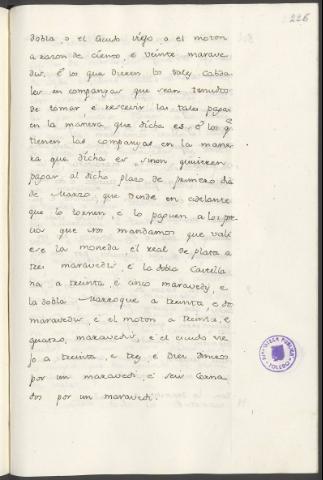 226
dobla, o el escudo viejo, o el moton
a razon de ciento, e veinte marave
dis. E los que dieren los tales cabda
les en compañias que sean tenudos
de tomar e rescevir las tales pagas
en la manera que dicha es, e los q̃
tienen las compañias en la mane
ra que dicha es, sinon quisieren
pagar al dicho plazo de primero dia
de Marzo, que dende en adelante
que lo tornen e lo paguen a los pre
cios que Nos mandamos que vala
ese la moneda el real de plata a
tres maravedis, e la dobla Castella
na a treinta, e cinco maravedis, e
la dobla Marroque a treinta, e dos
maravedis, e el moton a treinta, e
quatro, maravedis, e el escudo vie
jo a treinta, e tres, e diez dineros
por un maravedi, e seis Corna
dos por un maravedi.
BIBLIOTECA PUBLICA
TOLEDO